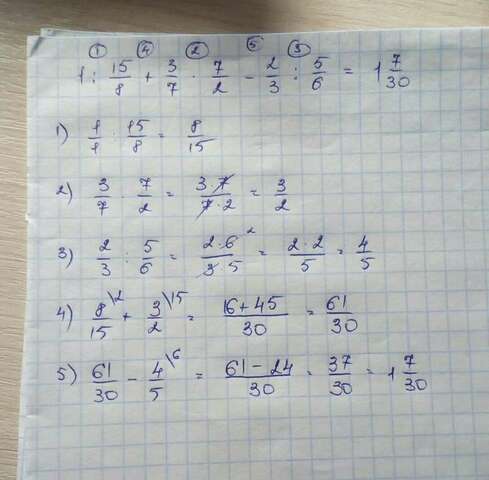 ① ④ ② ⑤ ③
1 : 15/8 + 3/7 · 7/2 - 2/3 : 5/6 = 1 7/30
1) 1/1 : 15/8 = 8/15
2) 3/7 · 7/2 = 3·7/7·2 = 3/2
3) 2/3 : 5/6 = 2·6²/3·5 = 2·2/5 = 4/5
4) 8/15 \2 + 3/2 \15 = 16+45/30 = 61/30
5) 61/30 - 4/5 \6 = 61-24/30 = 37/30 = 1 7/30